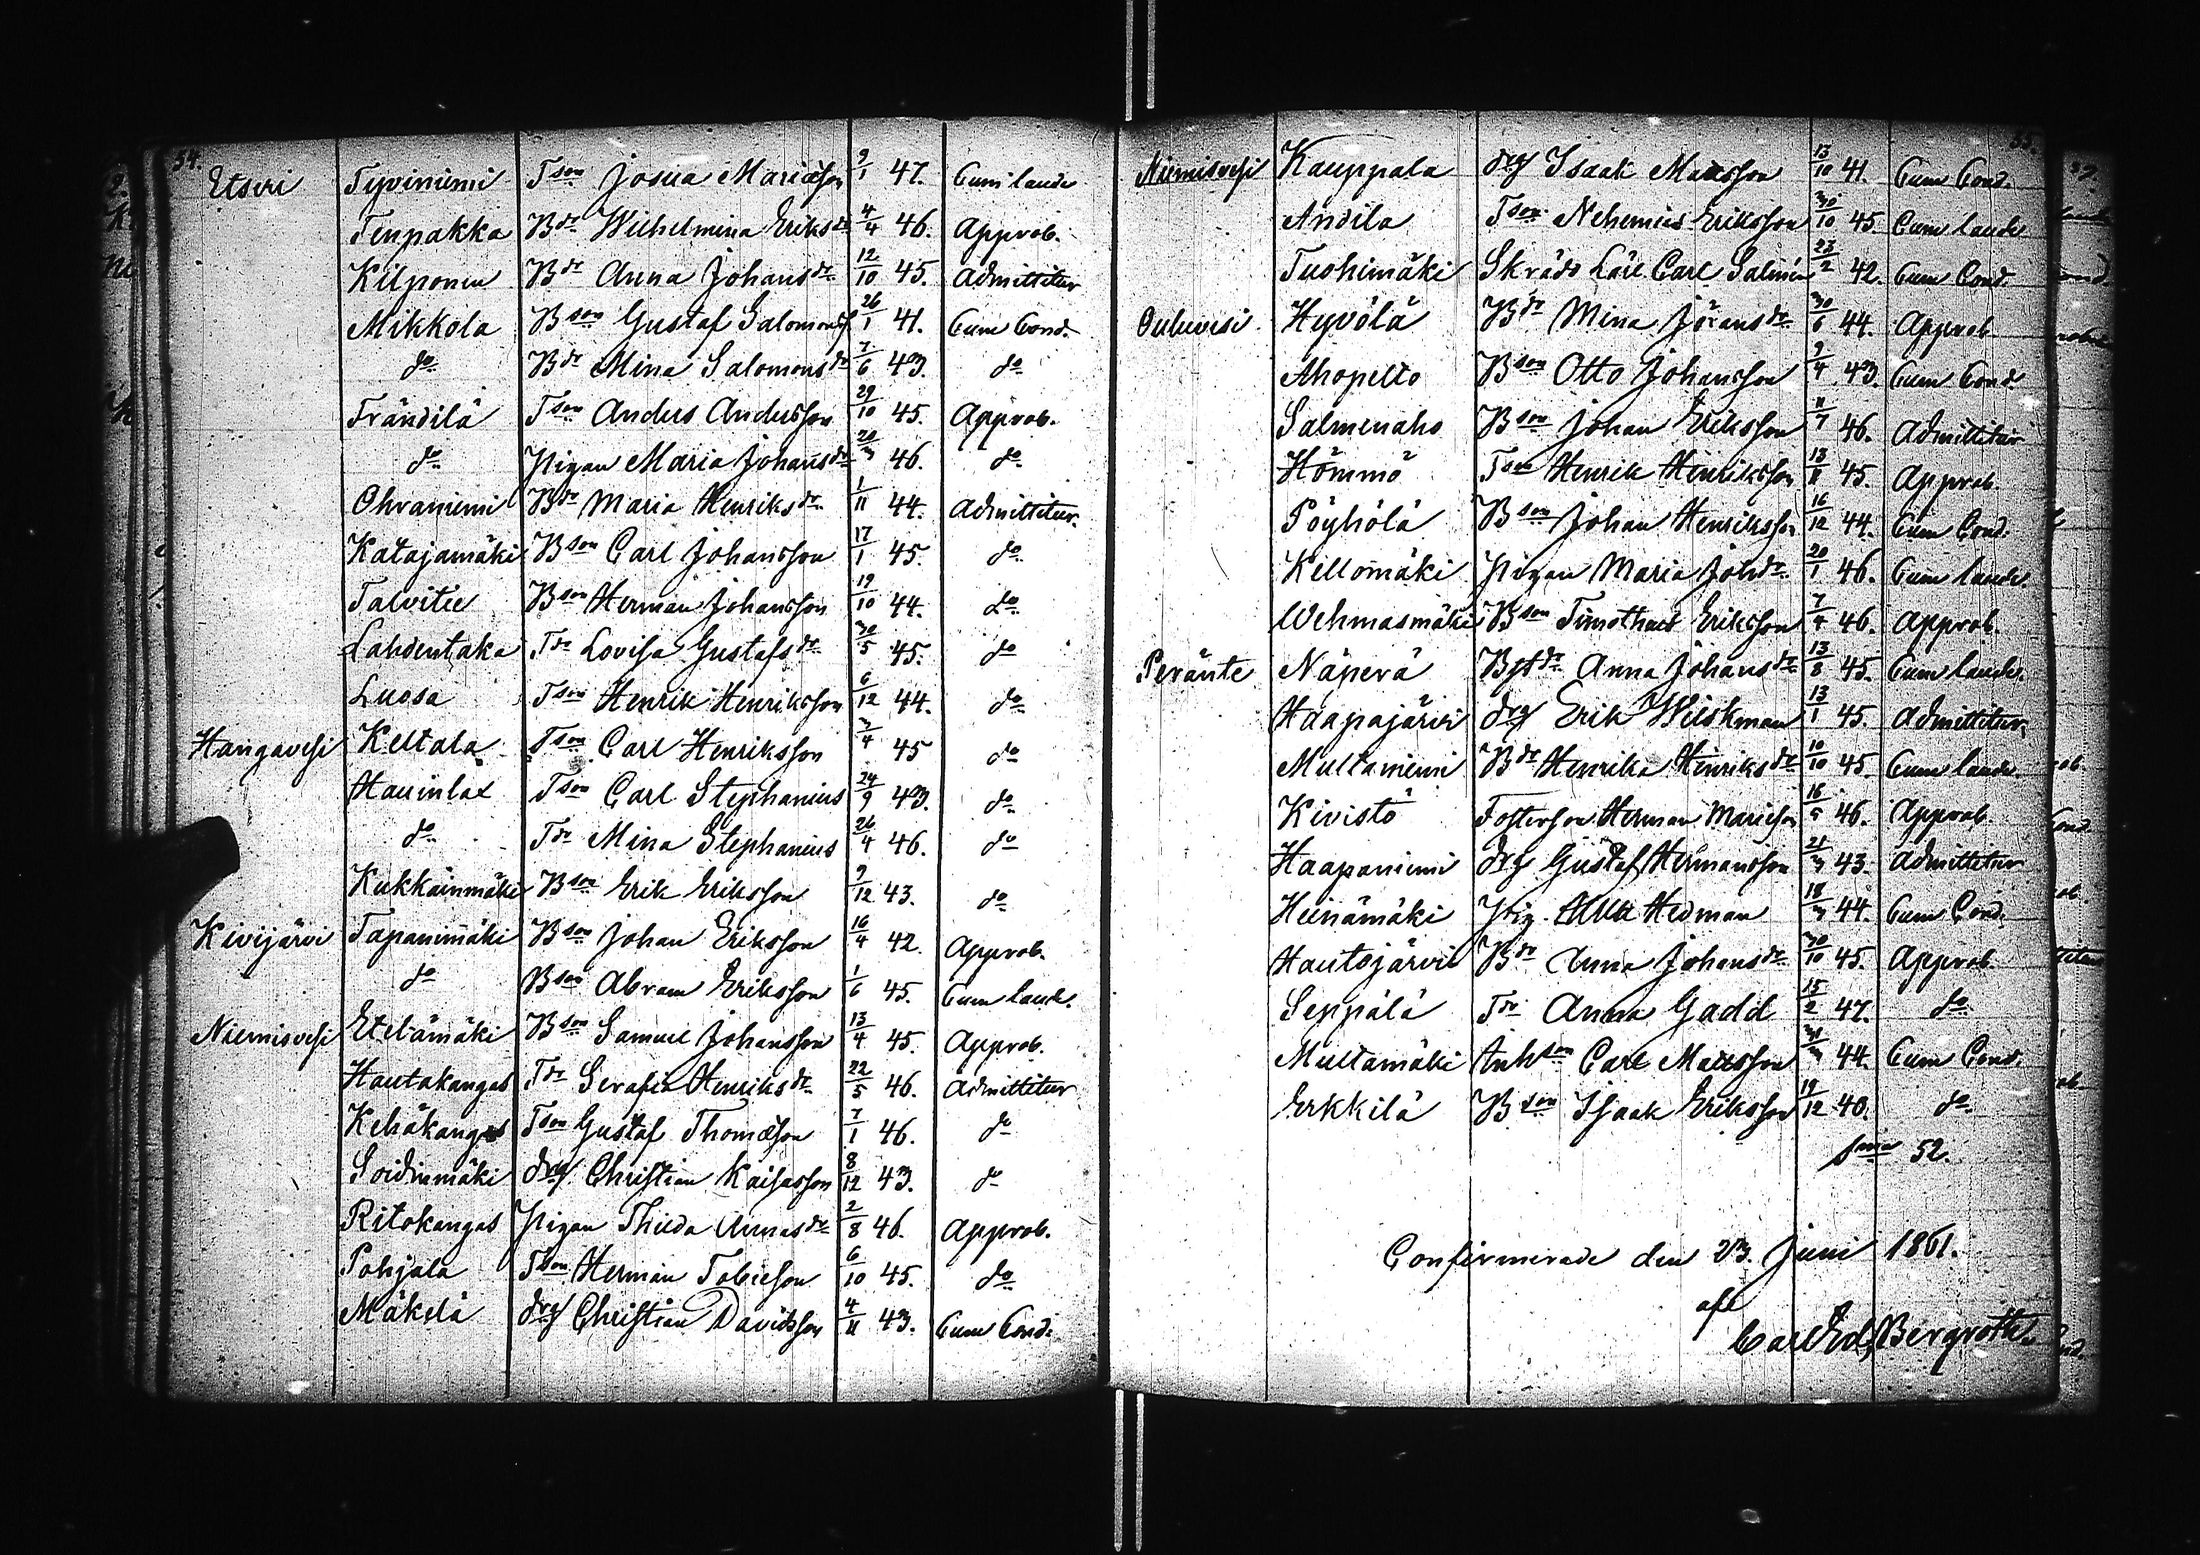 54.
Etseri Tyviniemi Tson Josua Mariæson 9/1 47. Cum laude
Tenpakka Bdr Wilhelmina Eriksdr 4/4 46. Approb.
Kilponen Bdr Anna Johansdr 12/10 45. Admittitur
Mikkola Bson Gustaf Salomonsf 26/1 41. Cum Cond.
do Bdr Mina Salomonsdr 7/6 43. do
Frändilä Tson Anders Andersson 29/10 45. Approb.
do Pigan Maria Johansdr 20/3 46. do
Ohraniemi Bdr Maria Henriksdr 1/11 44. Admittitur.
Katajamäki Bson Carl Johansson 17/1 45. do
Talvitie Bson Herman Johansson 19/10 44. do
Lahdentaka Tdr Lovisa Gustafsdr 30/5 45. do
Luosa Tson Henrik Henriksson 6/12 44. do
Hangavesi Keltala Tson Carl Henriksson 3/4 45 do
Hauinlax Tson Carl Stephanius 24/9 43. do
do Tdr Mina Stephanius 26/4 46. do
Kukkainmäki Bson Erik Eriksson 9/12 43. do
Kivijärvi Tapanimäki Bson Johan Eriksson 16/4 42. Approb.
do Bson Abram Eriksson 1/6 45. Cum laude.
Niemisvesi Etelämäki Bson Samuel Johansson 13/4 45. Approb.
Hautakangas Tdr Serafia Henriksdr 22/5 46. Admittitur
Kehäkangas Tson Gustaf Thomæson 7/1 46. do
Soidinmäki drg Christian Kaisasson 8/12 43. do
Ritokangas Pigan Thilda Annasdr 2/8 46. Approb.
Pohjala Tson Herman Tobieson 6/10 45. do
Mäkelä drg Christian Davidsson 4/11 43. Cum Cond.
55.
Niemisvesi Kauppala drg Isaak Matsson 13/10 41. Cum Cond.
Andila Tson Nehemius Eriksson 30/10 45. Cum laude
Tuohimäki Skrädd Lärl Carl Salmén 23/2 42. Cum Cond
Ouluvesi Hyvölä Bdr Mina Jöransdr 30/6 44. Approb.
Ahopelto Bson Otto Johansson 9/4 43. Cum Cond.
Salmenaho Bson Johan Eriksson 11/7 46. Admittitur
Hömmö Tson Henrik Henriksson 13/11 45. Approb.
Pöyhölä Bson Johan Henriksson 16/12 44. Cum Cond.
Killomäki Pigan Maria Johdr 20/1 46. Cum laude
Wehmasmäki Bson Timotheus Eriksson 7/4 46. Approb.
Peränte Näperä Bstdr Anna Johansdr 13/8 45. Cum laude.
Haapajärvi drg Erik Wilskman 13/1 45. Admittitur
Multaniemi Bdr Henrika Henriksdr 10/10 45. Cum laude
Kivistö Fosterson Herman Marieson 16/5 46. Approb.
Haapaniemi drg Gustaf Hermansson 21/3 43. Admittitur
Heinämäki Pig. Hedman 18/3 44. Cum Cond.
Hautojärvi Bdr Anna Johansdr 30/10 45. Approb.
Seppälä Tdr Anna Gadd 15/2 47. do
Multamäki Enkson Carl Mattsson 31/3 44. Cum Cond.
Erkkilä Bson Isaak Eriksson 19/12 40. do
sma 52.
Confirmerade den 23. Juni 1861.
afl
Carl Ed. Bergroth